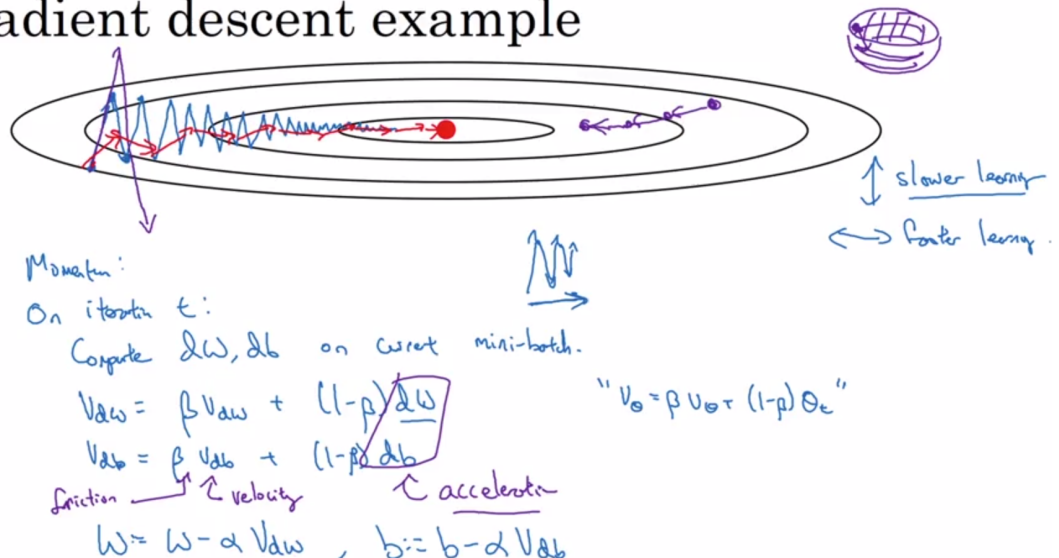 adient descent example
slower learning
faster learning
Momentum:
On iteration t:
Compute dW, db on current mini-batch.
Vdw = β Vdw + (1-β) dW
"Vθ = β Vθ + (1-β) θt"
Vdb = β Vdb + (1-β) db
friction velocity acceleration
W := W - α Vdw , b := b - α Vdb